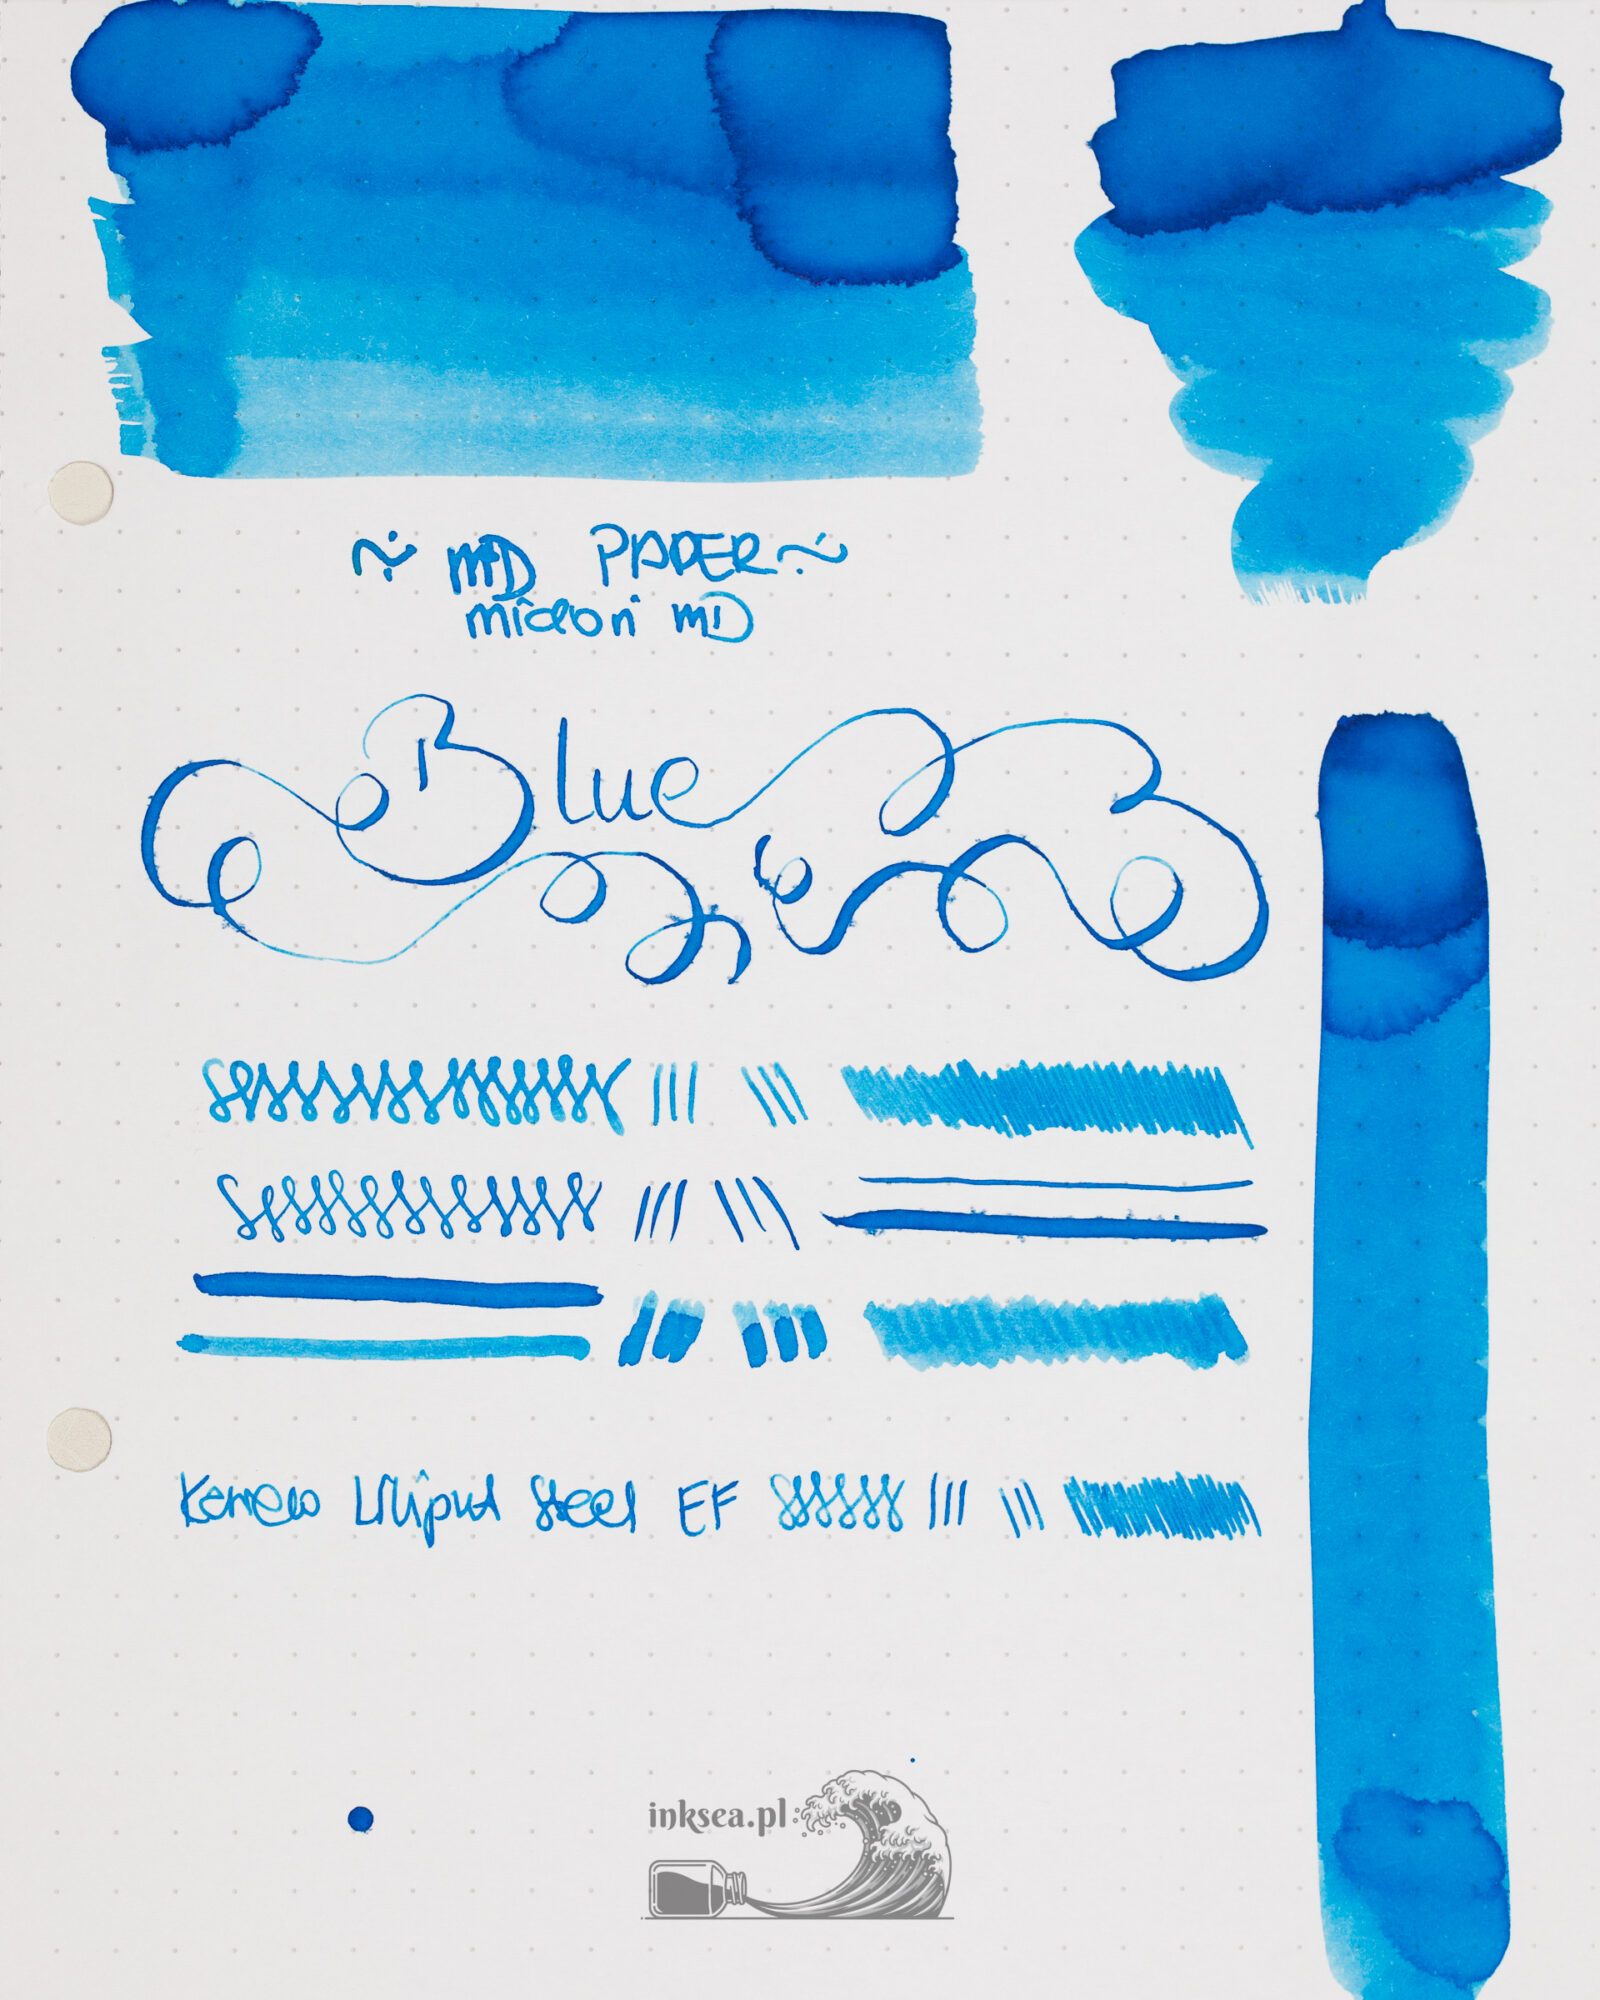 ~ MD PAPER ~
midori MD
Blue
Kaweco Liliput Steel EF
inksea.pl